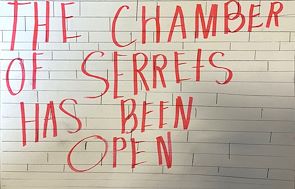 THE CHAMBER
OF SERRETS
HAS BEEN
OPEN